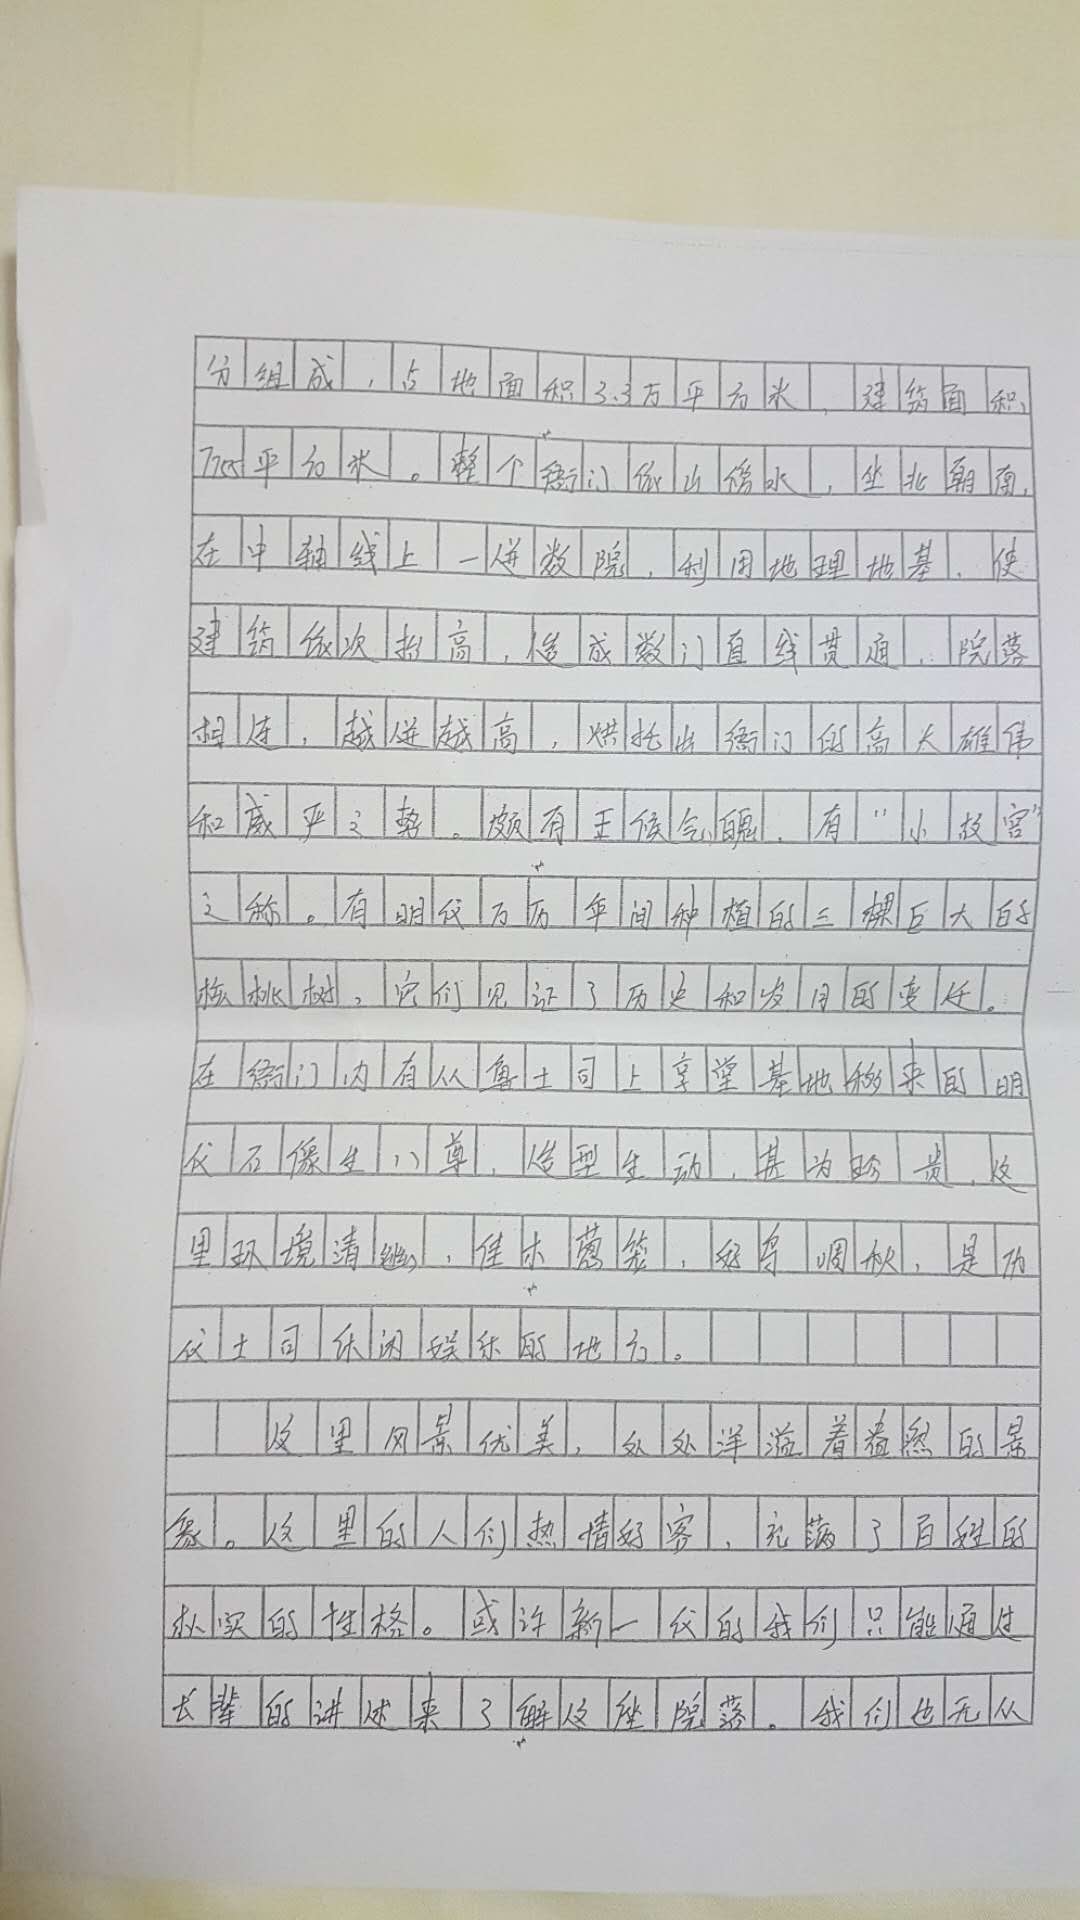 分组成，占地面积3.3万平方米，建筑面积
7755平方米。整个衙门依山傍水，坐北朝南，
在中轴线上一进数院，利用地理地基，使
建筑依次抬高，造成数门直线贯通，院落
相连，越进越高，烘托出衙门的高大雄伟
和威严之势。颇有王侯气魄，有“小故宫”
之称。有明代万历年间种植的三棵巨大的
核桃树，它们见证了历史和岁月的变迁。
在衙门内有从鲁土司上享堂基地移来的明
代石像生八尊，造型生动，甚为珍贵，这
里环境清幽，佳木葱笼，好鸟啁啾，是历
代土司休闲娱乐的地方。
这里风景优美，处处洋溢着盎然的景
象。这里的人们热情好客，充满了百姓的
朴实的性格。或许新一代的我们只能通过
长辈的讲述来了解这座院落。我们也无从